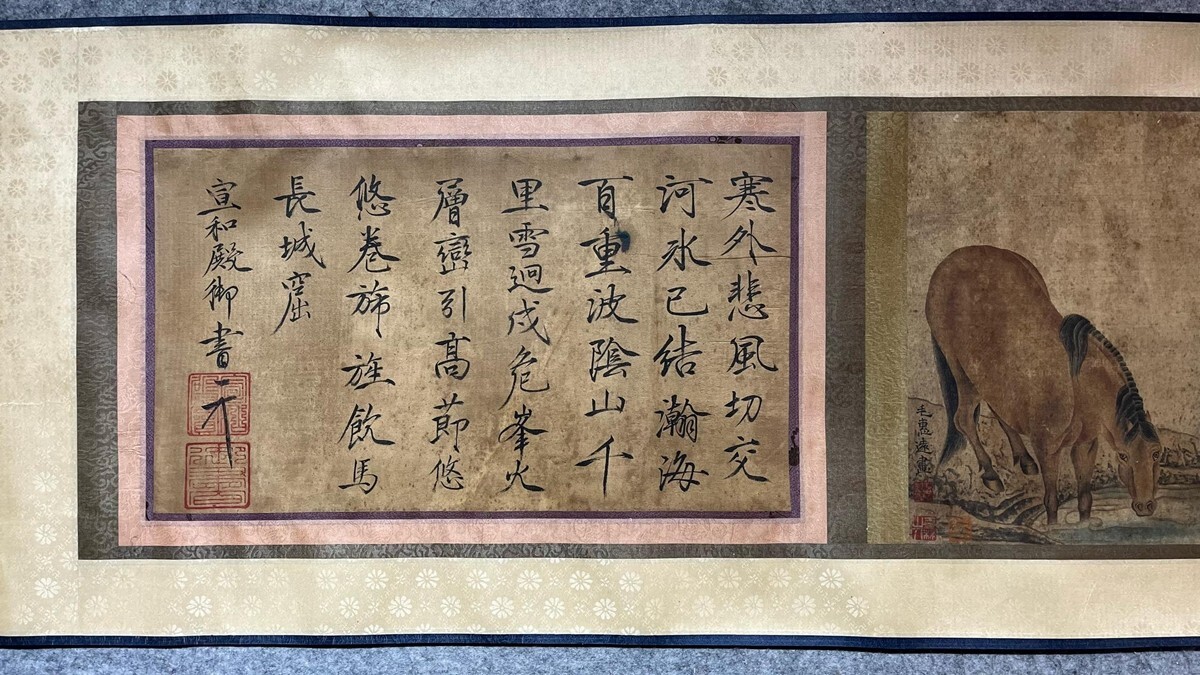 寒外悲風切交
河氷已結瀚海
百重波陰山千
里雪迥戍危峯火
層巒引高節悠
悠卷旆旌飲馬
長城窟
宣和殿御書
毛惠遠畫